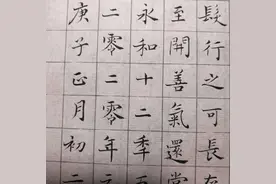 髮行之可長
至開善氣還
永和十二季
二零二零年
庚子正月初二